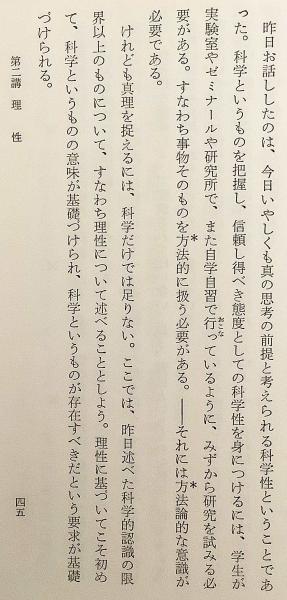 昨日お話ししたのは、今日いやしくも真の思考の前提と考えられる科学性ということであ
った。科学というものを把握し、信頼し得べき態度としての科学性を身につけるには、学生が
実験室やゼミナールや研究所で、また自学自習で行っているように、みずから研究を試みる必
要がある。すなわち事物そのものを方法的に扱う必要がある。――それには方法論的な意識が
必要である。
けれども真理を捉えるには、科学だけでは足りない。ここでは、昨日述べた科学的認識の限
界以上のものについて、すなわち理性について述べることとしよう。理性に基づいてこそ初め
て、科学というものの意味が基礎づけられ、科学というものが存在すべきだという要求が基礎
づけられる。
第二講 理 性
四五